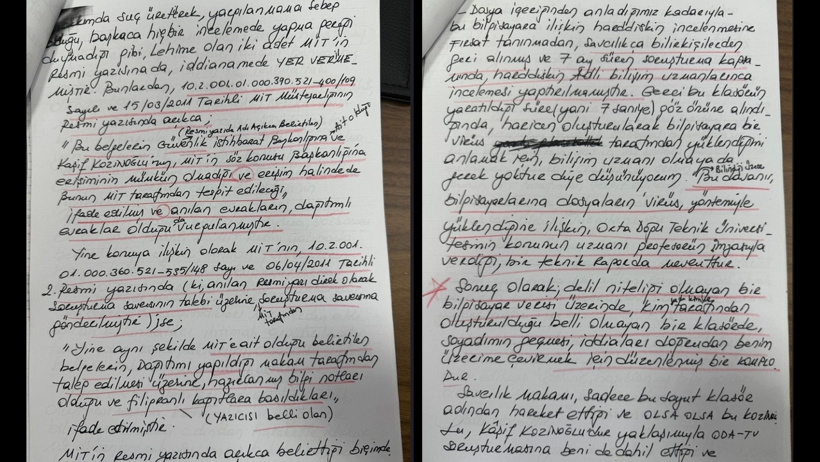 kımda suç üreterek, yargılanmama sebep
olduğu, başkaca hiçbir incelemede yapma gereği
duymadığı gibi, Lehime olan iki adet MİT'in
Resmi yazısına da, iddianamede YER VERME-
MİŞTİR. Bunlardan, 10.2.001.01.000.390.521-400/109
Sayılı ve 15/03/2011 Tarihli MİT Müsteşarlığının
Resmi yazısında açıkça;
(Resmi yazıda Adı Açıkça Belirtilen)
"Bu belgelerin Güvenlik İstihbarat Başkanlığına ait olduğu
Kaşif KOZİNOĞLU'nun, MİT'in söz konusu Başkanlığına
erişiminin mümkün olmadığı ve erişim halinde de
Bunun MİT tarafından tespit edileceği,,
ifade edilmiş ve anılan evrakların, dağıtımlı
evraklar olduğu da vurgulanmıştır.
Yine konuya ilişkin olarak MİT'nin, 10.2.001.
01.000.360.521-535/148 sayı ve 06/04/2011 Tarihli
2. Resmi yazısında (ki, anılan Resmi yazı direk olarak
Soruşturma savcısının talebi üzerine, soruşturma savcısına
MİT tarafından
gönderilmiştir) ise;
"Yine aynı şekilde MİT'e ait olduğu belirtilen
belgelerin, Dağıtımı yapıldığı makam tarafından
talep edilmesi üzerine, hazırlanmış bilgi notları
olduğu ve filigranlı kağıtlara basıldıkları,,
(YAZICISI belli olan)
ifade edilmiştir.
MİT'in Resmi yazısında açıkca belirttiği biçimde
- Dosya içeriğinden anladığımız kadarıyla-
bu bilgisayara ilişkin harddiskin incelenmesine
FIRSAT tanınmadan, Savcılıkca bilirkişilerden
geri alınmış ve 7 ay süren soruşturma kapsa-
mında, harddiskin Adli bilişim uzmanlarınca
incelemesi yaptırılmamıştır. Gerçi bu klasörün
yaratıldığı süre (yani 7 saniye) göz önüne alındı-
ğında, haricen oluşturularak bilgisayara bir
virüs tarafından yüklendiğini
anlamak için, bilişim uzmanı olmaya da
gerek yoktur diye düşünüyorum. Bilindiği üzere Bu davanın,
bilgisayarlarına dosyaların "virüs,, yöntemiyle
yüklendiğine ilişkin, Orta Doğu Teknik Üniversi-
tesinin konunun uzmanı profesörün imzasıyla
verdiği, bir teknik Raporda mevcuttur.
Sonuç olarak, delil niteliği olmayan bir
bilgisayar verisi üzerinde, kim tarafından
oluşturulduğu belli olmayan bir klasörde,
soyadımın geçmesi, iddiaları doğrudan benim
üzerime çevirmek için düzenlenmiş bir KOMPLO
DUR.
Savcılık makamı, sadece bu soyut klasör
adından hareket ettiği ve OLSA OLSA bu KOZİNOĞ
LU, KÂŞİF KOZİNOĞLU'dur yaklaşımıyla ODA-TV
Soruşturmasına beni de dahil ettiği ve